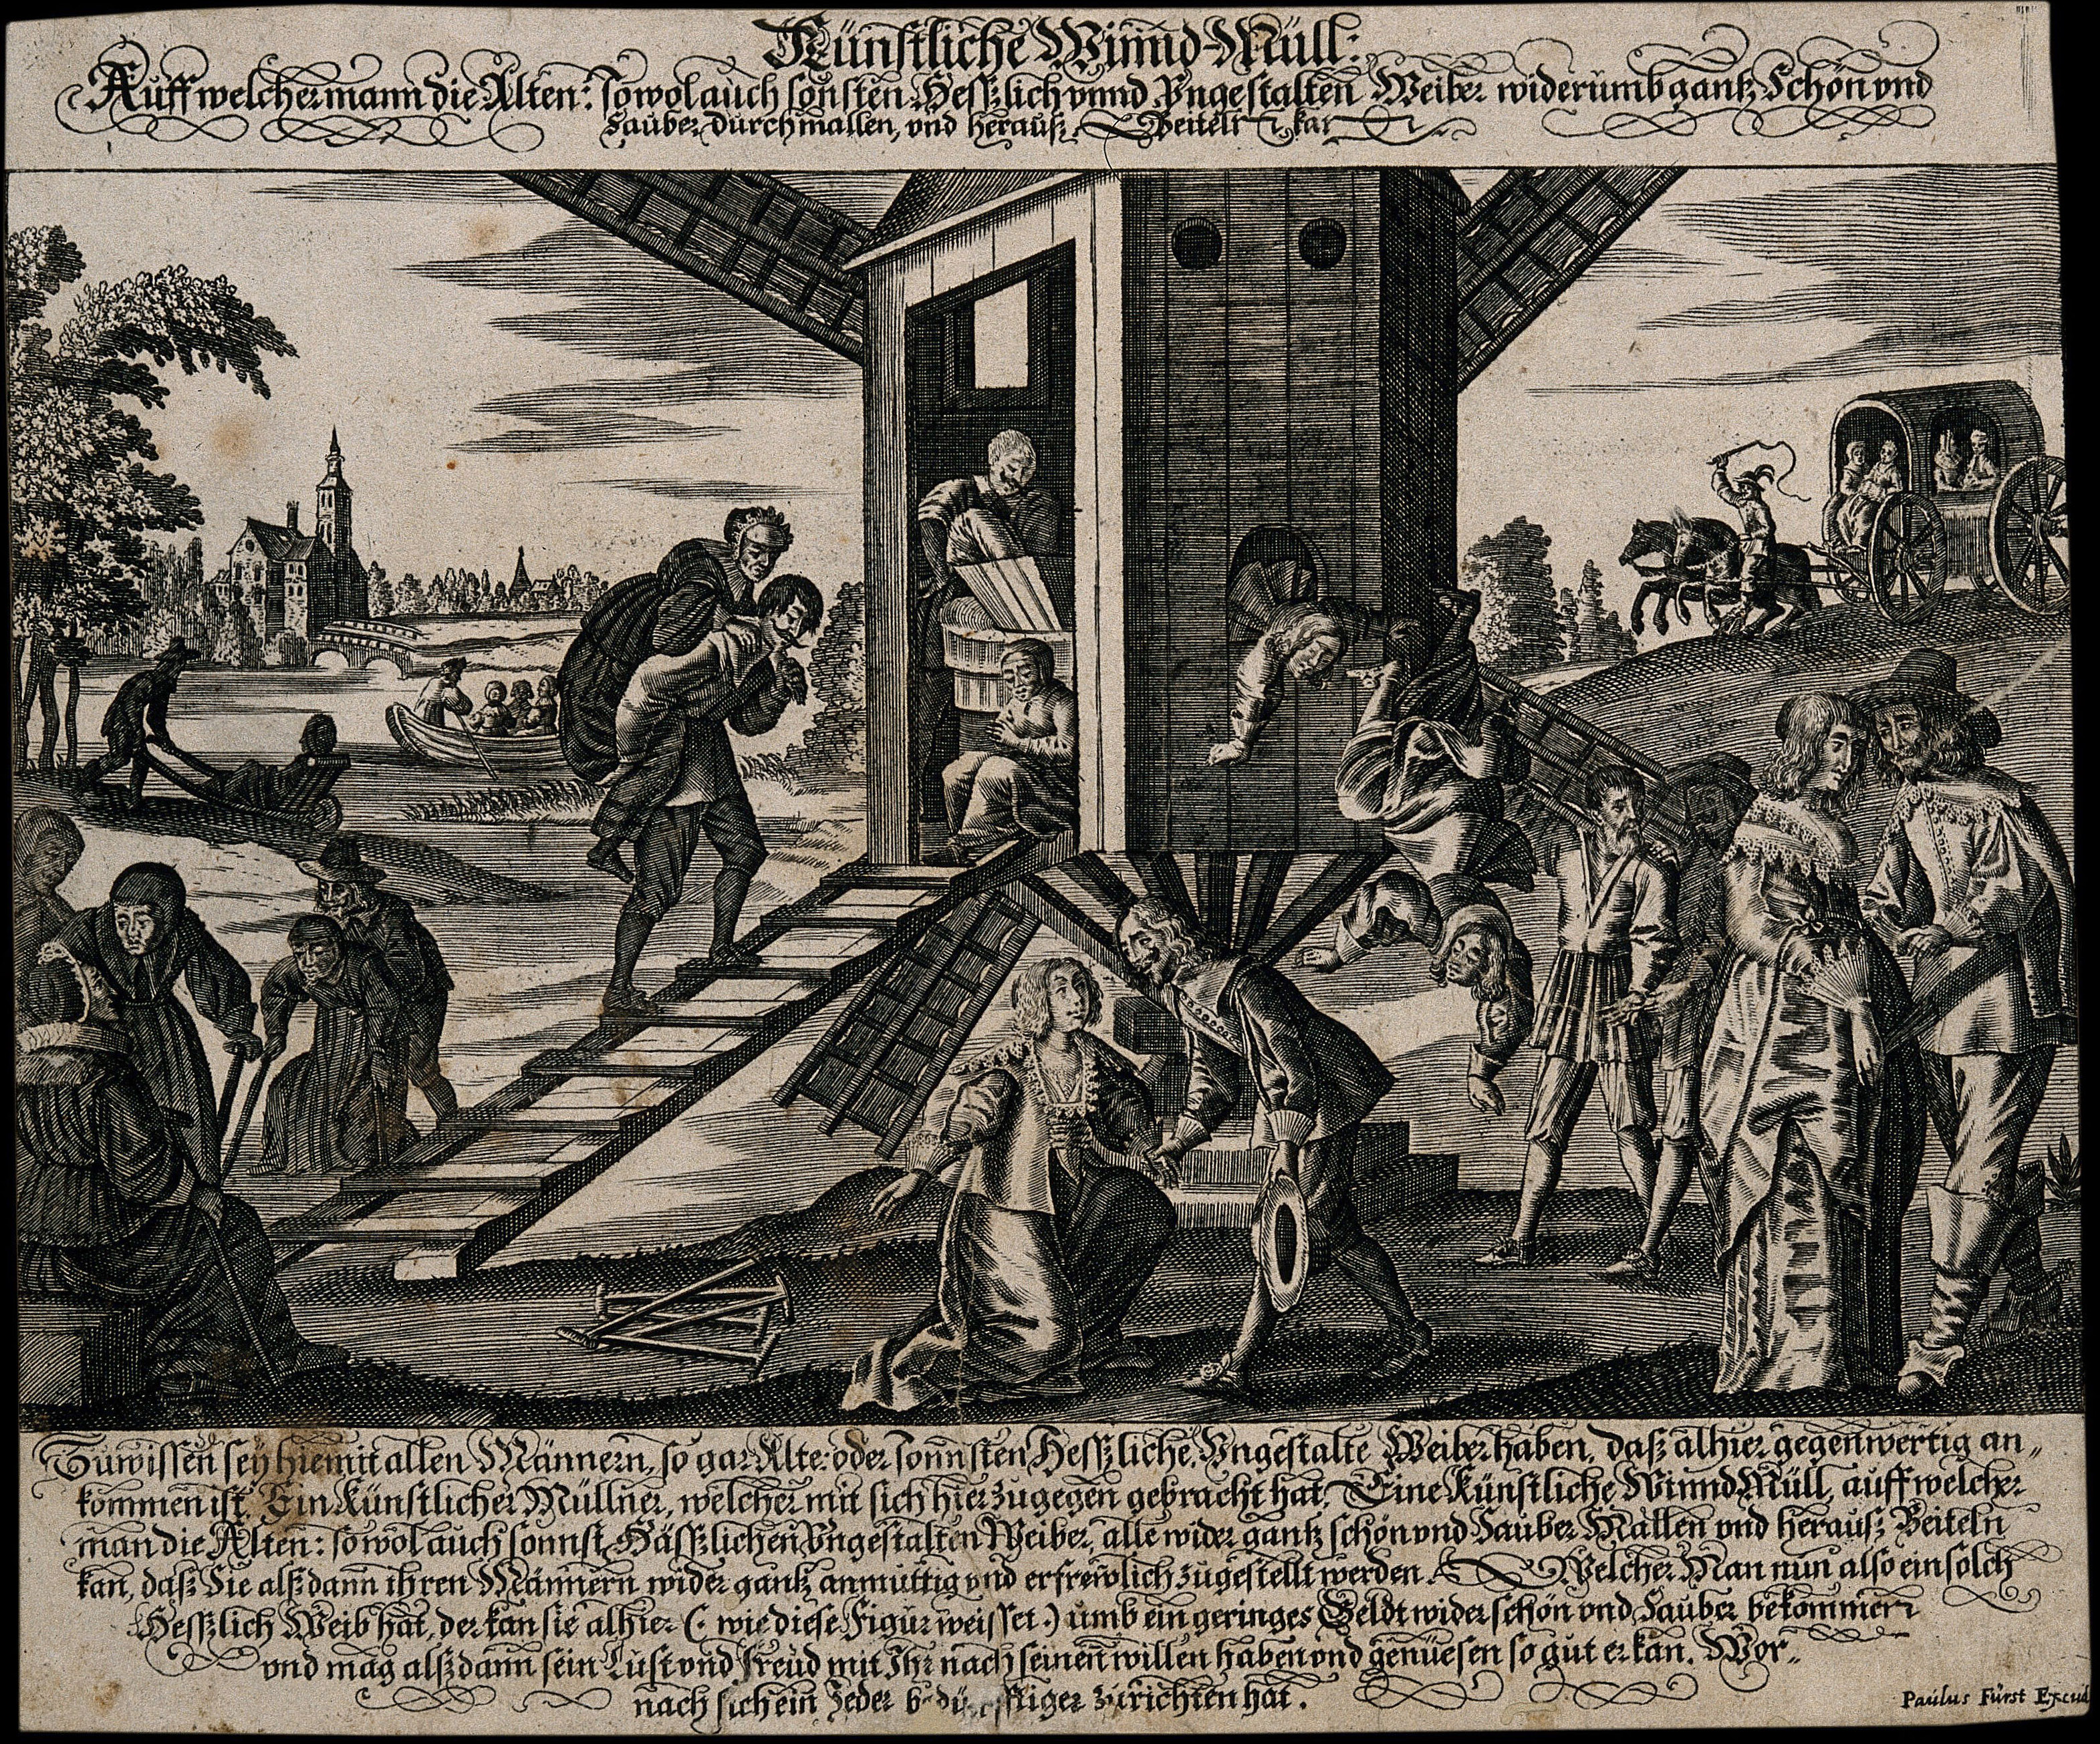 Künstliche Winnd-Müll:
Auff welcher mann die Alten: so wol auch sonsten Hesslich vnnd Vngestalten Weiber widerumb gantz Schön vnd
Sauber durchmallen, vnd herauß Beiteln kan
Zuwissen seÿ hiemit allen Männern, so gar Alte: oder sonnsten Hessliche, Vngestalte Weiber haben, daß alhier gegenwertig an„
kommen ist, Ein Künstlicher Müllner, welcher mit sich hier zugegen gebracht hat, Eine Künstliche Winnd Müll, auff welcher
man die Alten: so wol auch sonnst Hässlichen Vngestalten Weiber, alle wider gantz schön vnd Sauber Mallen vnd herauß Beiteln
kan, daß Sie alß dann ihren Männern wider gantz anmüttig vnd erfrewlich zugestellt werden. Welcher Man nun also ein solch
Hesslich Weib hat, der kan sie alhier (: wie diese Figur weisset :) umb ein geringes Geldt wider schön vnd Sauber bekommen
vnd mag alß dann sein Lust vnd freud mit Ihr nach seinen willen haben vnd genüesen so gut er kan. Wor„
nach sich ein Jeder zurichten hat.
Paulus Fürst Excud